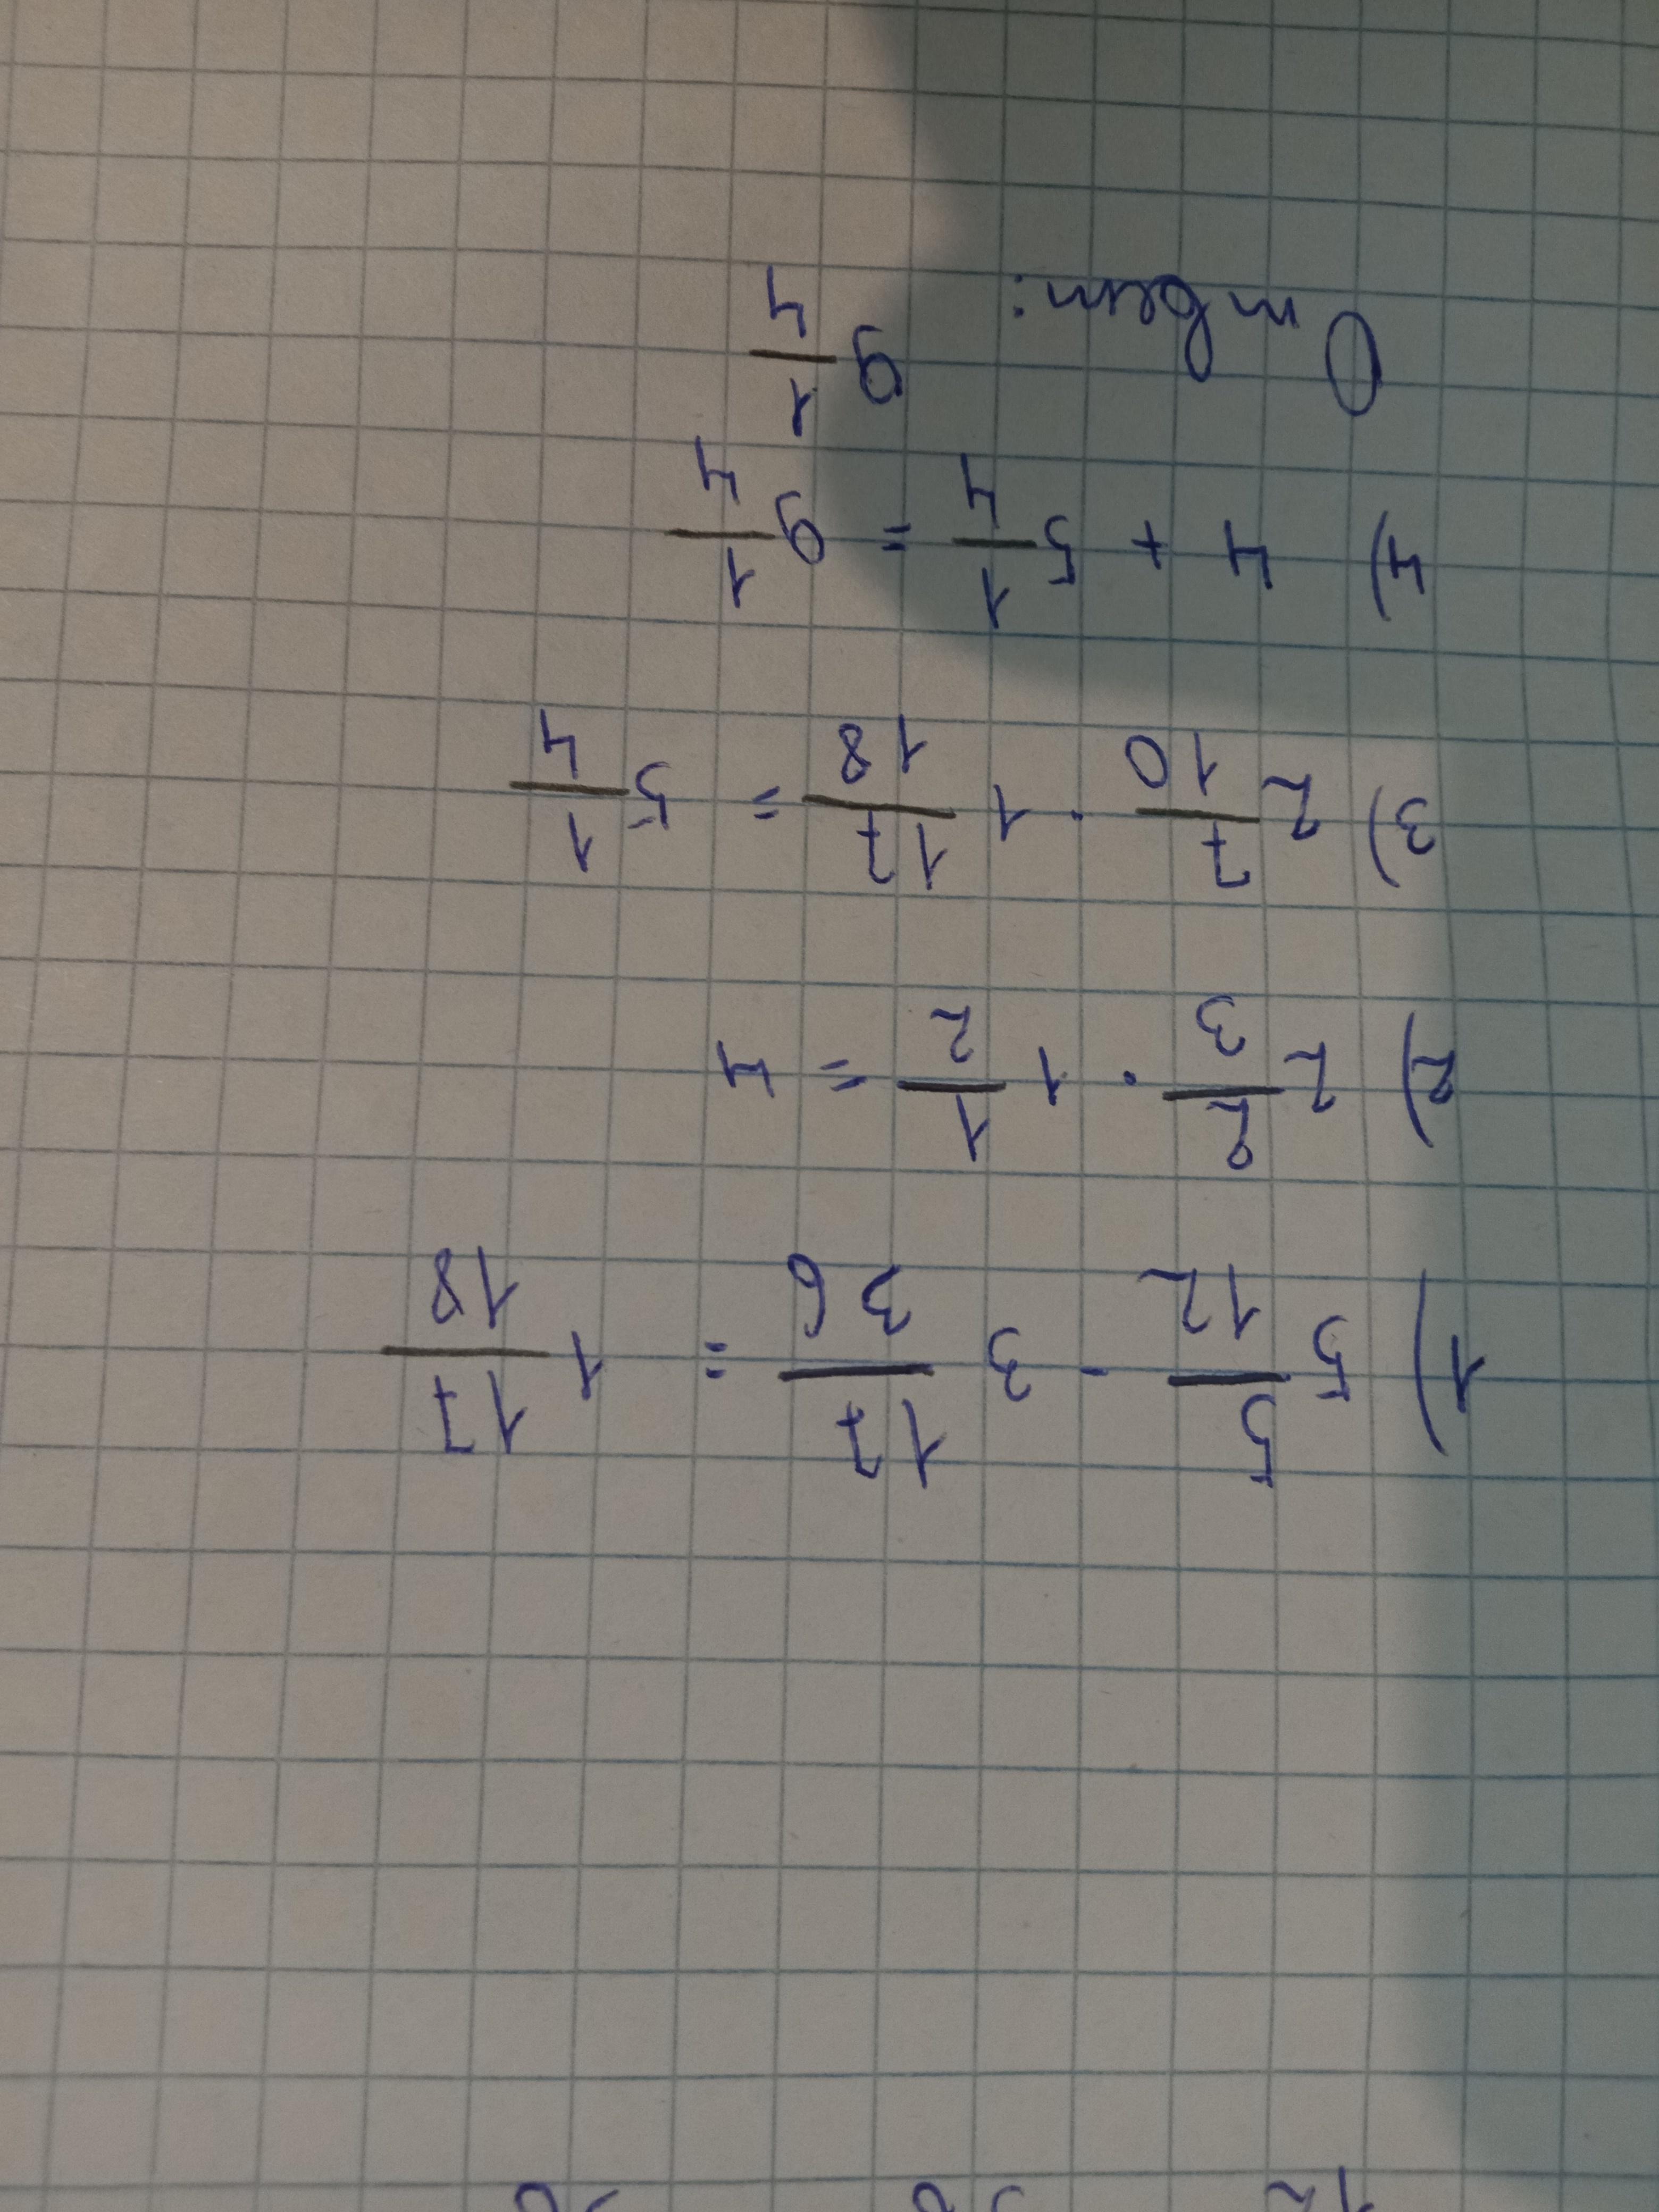 1) 5 5/12 - 3 17/36 = 1 17/18
2) 2 2/3 · 1 1/2 = 4
3) 2 7/10 · 1 17/18 = 5 1/4
4) 4 + 5 1/4 = 9 1/4
Ответ: 9 1/4